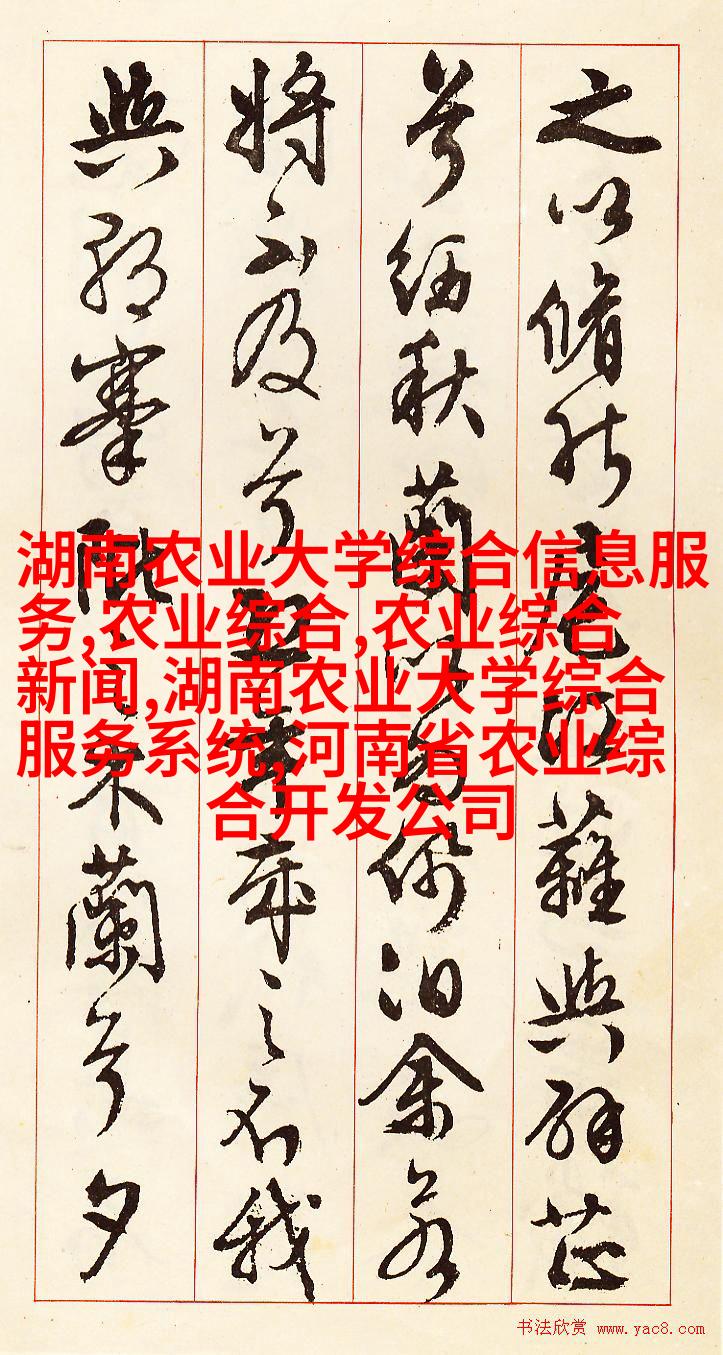 之以脩能扈江蘺與辟芷
兮紉秋蘭以為佩汩余若
將不及兮恐年歲之不我
與朝搴阰之木蘭兮夕
湖南农业大学综合信息服
务,农业综合,农业综合
新闻,湖南农业大学综合
服务系统,河南省农业综
合开发公司
书法欣赏 www.yac8.com